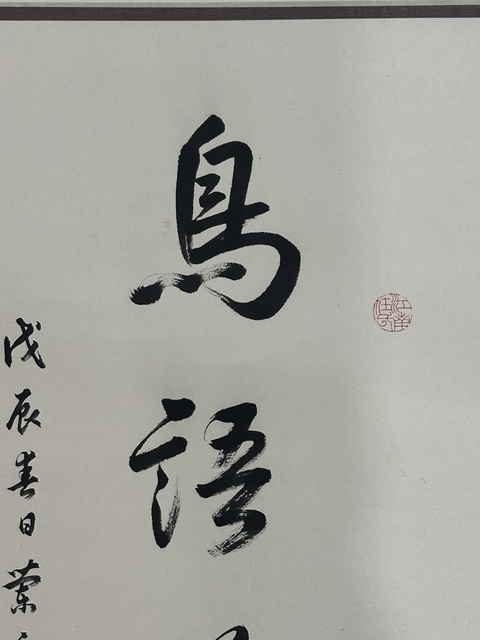 鳥語
戊辰春日蘭